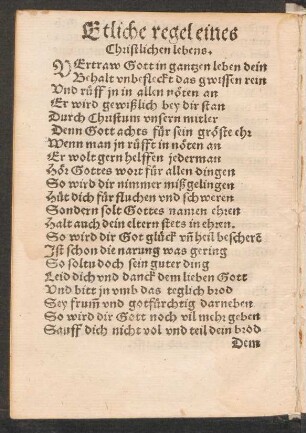 Etliche regel eines
Christlichen lebens.
VErtraw Gott in gantzen leben dein
Behalt vnbefleckt das gwissen rein
Vnd rüff jn in allen nöten an
Er wird gewißlich bey dir stan
Durch Christum vnsern mitler
Denn Gott achts für sein gröste ehr
Wenn man jn rüfft in nöten an
Er wolt gern helffen jederman
Hör Gottes wort für allen dingen
So wird dir nimmer mißgelingen
Hüt dich für fluchen vnd schweren
Sondern solt Gottes namen ehren
Halt auch dein eltern stets in ehren.
So wird dir Got glück vñ heil bescherē
Ist schon die narung was gering
So soltu doch sein guter ding
Leid dich vnd danck dem lieben Gott
Vnd bitt jn vmb das teglich brod
Sey frum̃ vnd gotfürchtig darneben
So wird dir Gott noch vil mehr geben
Sauff dich nicht vol vnd teil dein brod
Dem